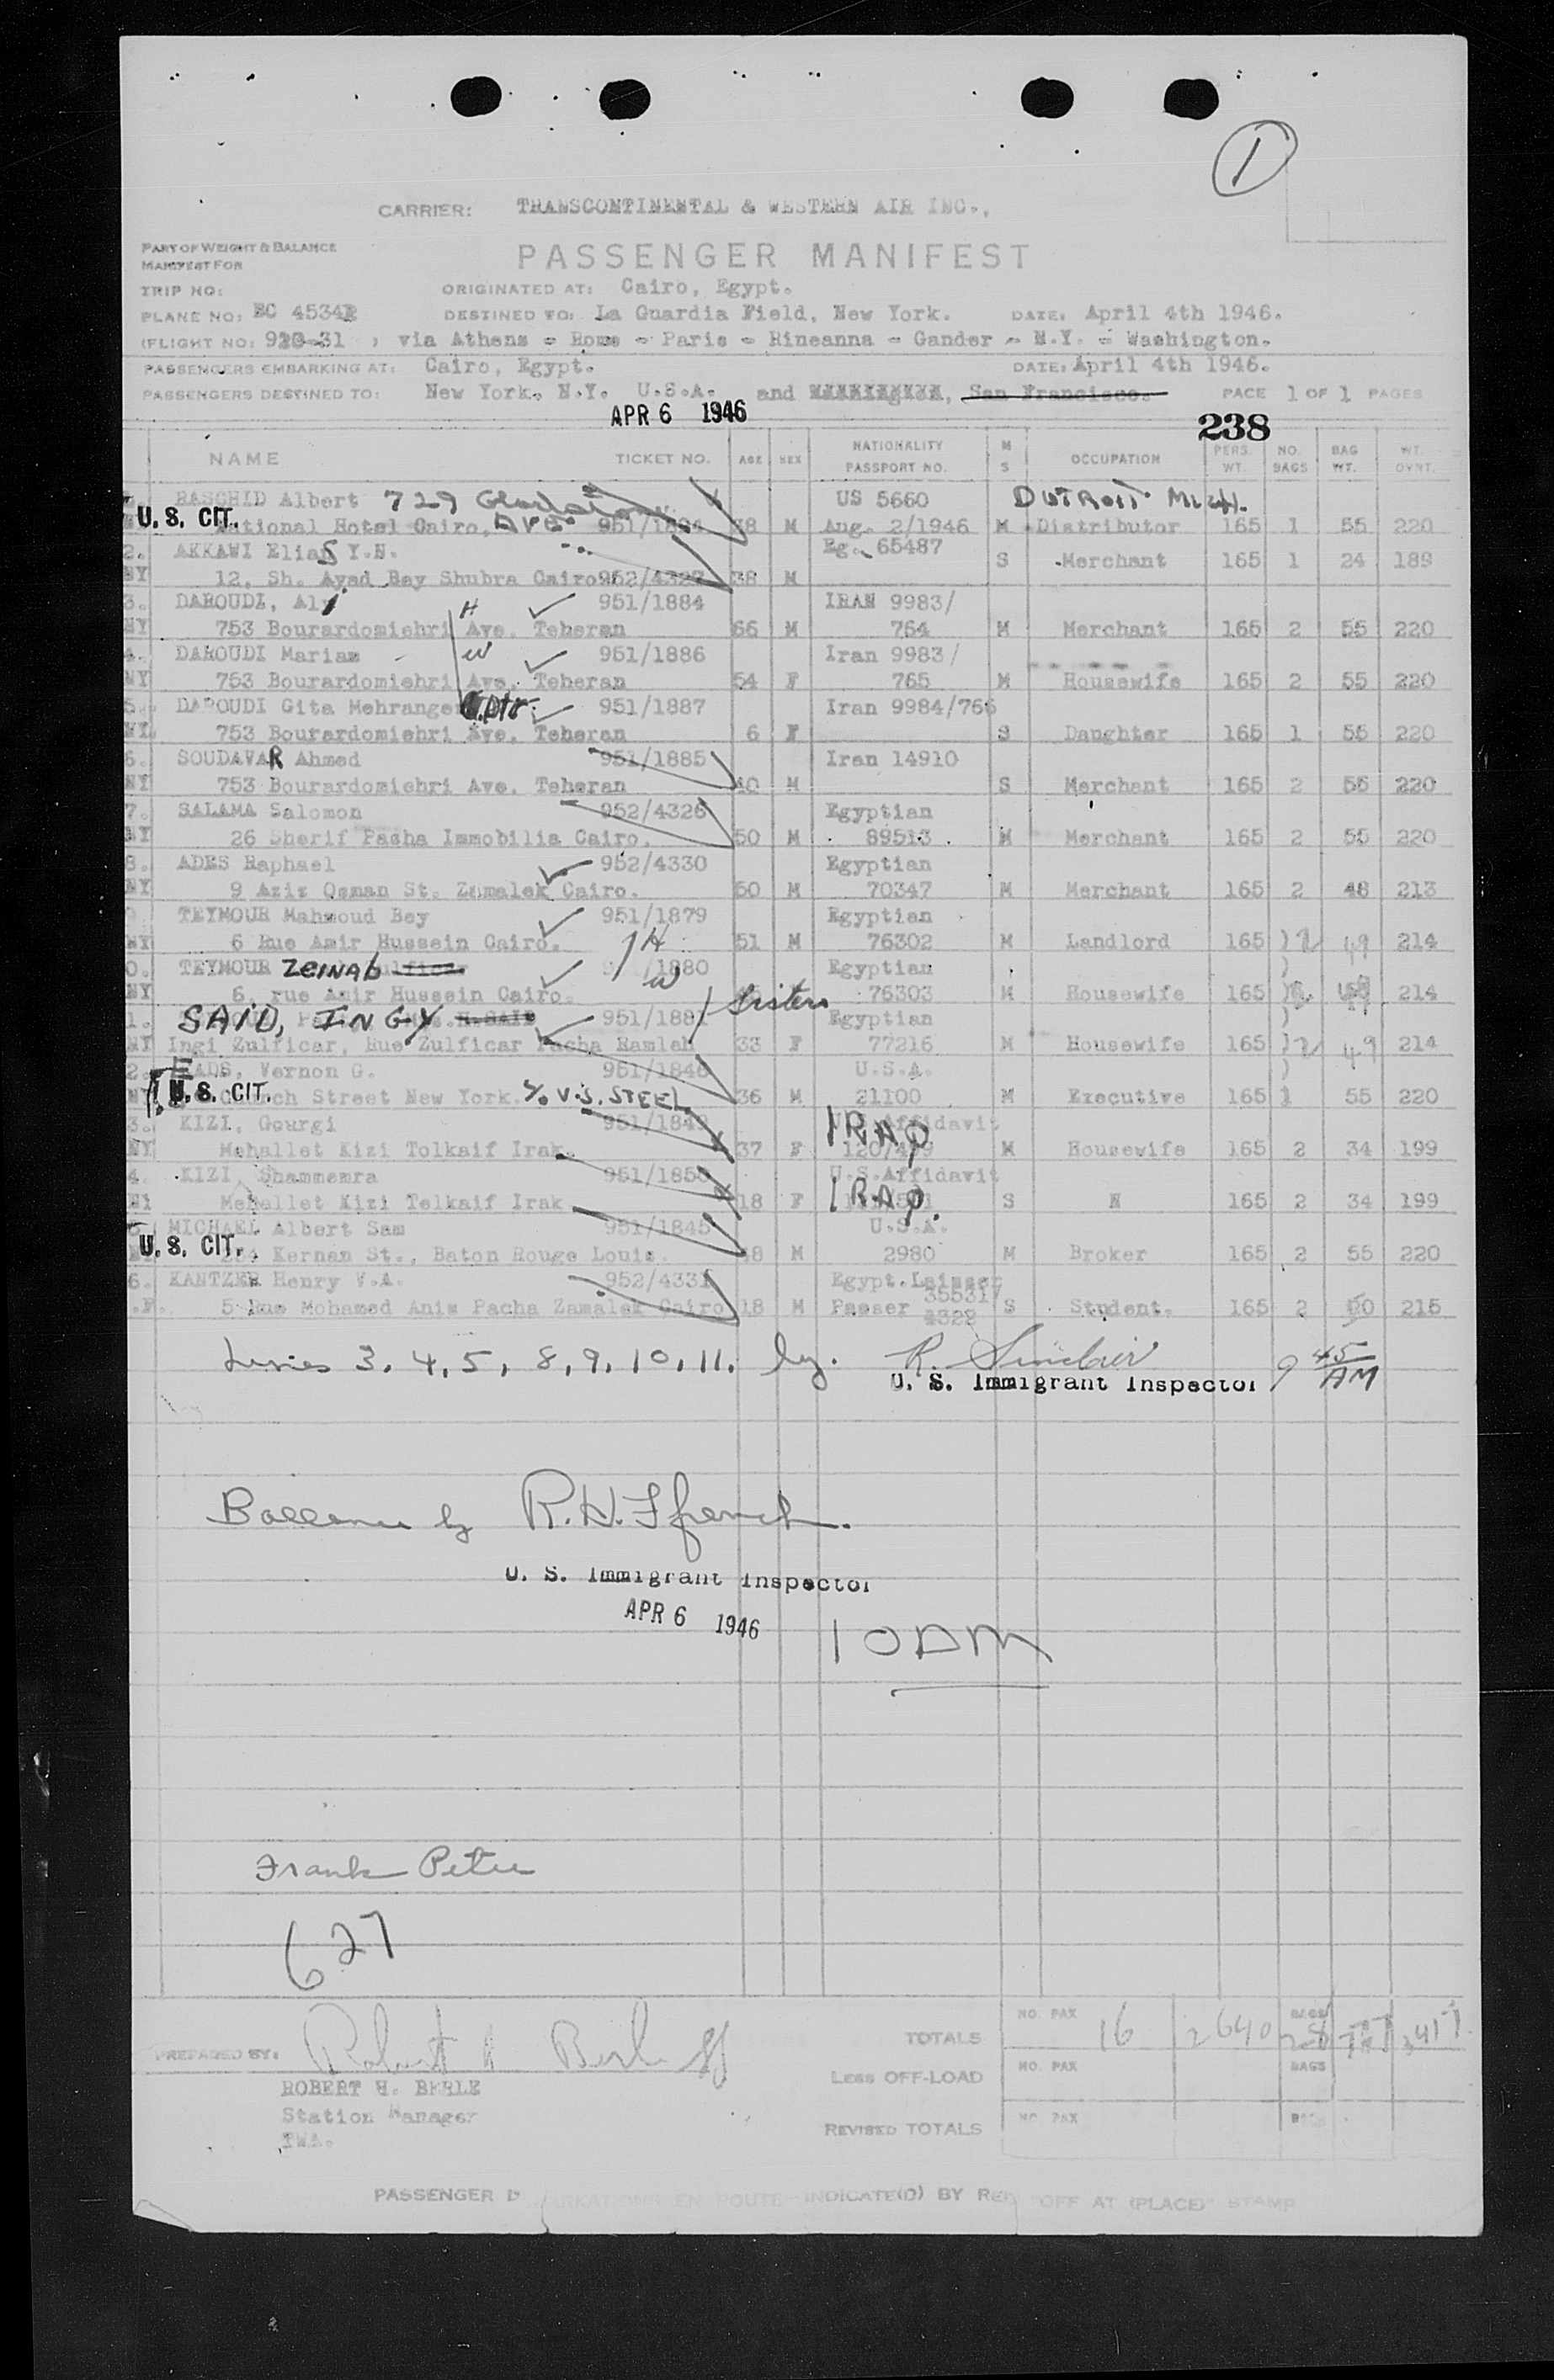 1
CARRIER: TRANSCONTINENTAL & WESTERN AIR INC.,
PART OF WEIGHT & BALANCE
MANIFEST FOR
PASSENGER MANIFEST
TRIP NO:
ORIGINATED AT: Cairo, Egypt.
PLANE NO: 4534 DESTINED TO: La Guardia Field, New York. DATE: April 4th 1946.
(FLIGHT NO: ) via Athens - Rome - Paris - Rineanna - Gander - N.Y. - Washington.
PASSENGERS EMBARKING AT: Cairo, Egypt. DATE: April 4th 1946.
PASSENGERS DESTINED TO: New York, N.Y. U.S.A. and San Francisco. PAGE 1 OF 1 PAGES
APR 6 1946
238
NAME TICKET NO. AGE SEX NATIONALITY PASSPORT NO. M S OCCUPATION PERS. WT. NO. BAGS BAG WT. WT. OVNT.
RASCHID Albert 729 US 5660 DUTROIT MICH.
U. S. CIT. National Hotel Cairo, AVE. 38 M Aug. 2/1946 M Distributor 165 1 55 220
2. AKKAWI EliaS Y.N. Eg. 65487
NY 12, Sh. Ayad Bey Shubra Cairo 952/4327 38 M S Merchant 165 1 24 189
3. DAROUDI, Aly H 951/1884 IRAN 9983/
NY 753 Bourardomiehri Ave. Teheran 66 M 764 M Merchant 165 2 55 220
4. DAROUDI Mariam W 951/1886 Iran 9983/
NY 753 Bourardomiehri Ave. Teheran 54 F 765 M Housewife 165 2 55 220
5. DAROUDI Gita Mehrange 951/1887 Iran 9984/766
NY 753 Bourardomiehri Ave. Teheran 6 F S Daughter 165 1 55 220
6. SOUDAVAR Ahmed 951/1885 Iran 14910
NY 753 Bourardomiehri Ave. Teheran 40 M S Merchant 165 2 55 220
7. SALAMA Salomon 952/4326 Egyptian
NY 26 Sherif Pasha Immobilia Cairo. 50 M 89513 M Merchant 165 2 55 220
8. ADES Raphael 952/4330 Egyptian
NY 9 Aziz Osman St. Zamalek Cairo. 50 M 70347 M Merchant 165 2 48 213
TEYMOUR Mahmoud Bey 951/1879 Egyptian
NY 6 Rue Amir Hussein Cairo. H 51 M 76302 M Landlord 165 2 49 214
0. TEYMOUR ZEINAb /1880 W Egyptian
NY 6, rue Amir Hussein Cairo. 76303 M Housewife 165 214
1. SAID, INGY 951/1881 Sisters Egyptian
NY Ingi Zulficar, Rue Zulficar Pacha Ramleh 33 F 77216 M Housewife 165 2 49 214
2. EADS, Vernon G. 951/1846 U.S.A.
U. S. CIT. Street New York. c/o U.S. STEEL 36 M 21100 M Executive 165 1 55 220
3. KIZI, Gourgi Affidavit
NY Mahallet Kizi Tolkaif Irak. 37 F IRAQ M Housewife 165 2 34 199
4. KIZI, Shammemra 951/1850 U.S. Affidavit
NY Mahallet Kizi Telkaif Irak 18 F IRAQ. S 165 2 34 199
MICHAEL Albert Sam 951/1845 U.S.A.
U. S. CIT. Kernan St., Baton Rouge Louis. 48 M 2980 M Broker 165 2 55 220
6. KANTZER Henry V.A. 952/4331 Egypt. Laisser 355317
5 Rue Mohamed Anis Pacha Zamalek Cairo 18 M Passer 4322 S Student. 165 2 50 215
Lines 3, 4, 5, 8, 9, 10, 11. by. R. Sinclair 9 45 AM
U. S. Immigrant Inspector
by R.H. Ffrench.
U. S. Immigrant Inspector
APR 6 1946
10 AM
Frank Petre
627
PREPARED BY:
ROBERT H. BERLE
Station Manager
TWA.
TOTALS NO. PAX 16 2640 BAGS 28
Less OFF-LOAD NO. PAX BAGS
REVISED TOTALS NO. PAX BAGS
PASSENGER EN ROUTE INDICATE(D) BY RED "OFF AT (PLACE)" STAMP